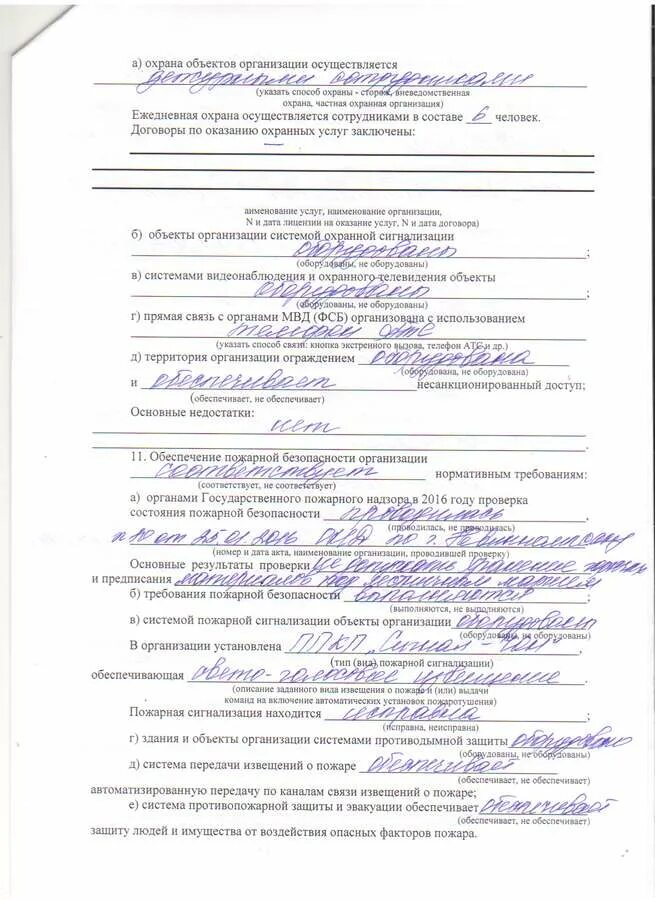 а) охрана объектов организации осуществляется
дежурными сотрудниками
(указать способ охраны - сторож, вневедомственная
охрана, частная охранная организация)
Ежедневная охрана осуществляется сотрудниками в составе 6 человек.
Договоры по оказанию охранных услуг заключены:
—
аименование услуг, наименование организации,
N и дата лицензии на оказание услуг, N и дата договора)
б) объекты организации системой охранной сигнализации
оборудованы ;
(оборудованы, не оборудованы)
в) системами видеонаблюдения и охранного телевидения объекты
оборудованы ;
(оборудованы, не оборудованы)
г) прямая связь с органами МВД (ФСБ) организована с использованием
телефон АТС ;
(указать способ связи: кнопка экстренного вызова, телефон АТС и др.)
д) территория организации ограждением оборудована
(оборудована, не оборудована)
и обеспечивает несанкционированный доступ;
(обеспечивает, не обеспечивает)
Основные недостатки:
нет .
.
11. Обеспечение пожарной безопасности организации
соответствует нормативным требованиям:
(соответствует, не соответствует)
а) органами Государственного пожарного надзора в 2016 году проверка
состояния пожарной безопасности проводилась ,
(проводилась, не проводилась)
N 10 от 25.01.2016 по г.
(номер и дата акта, наименование организации, проводившей проверку)
Основные результаты проверки не допускать хранение
и предписания материалов под лестничным маршем
б) требования пожарной безопасности выполняются ;
(выполняются, не выполняются)
в) системой пожарной сигнализации объекты организации оборудованы
(оборудованы, не оборудованы)
В организации установлена ППКП "Сигнал- ,
(тип (вид) пожарной сигнализации)
обеспечивающая свето-голосовое извещение .
(описание заданного вида извещения о пожаре и (или) выдачи
команд на включение автоматических установок пожаротушения)
Пожарная сигнализация находится исправна ;
(исправна, неисправна)
г) здания и объекты организации системами противодымной защиты оборудовано
(оборудованы, не оборудованы)
д) система передачи извещений о пожаре обеспечивает
(обеспечивает, не обеспечивает)
автоматизированную передачу по каналам связи извещений о пожаре;
е) система противопожарной защиты и эвакуации обеспечивает обеспечивает
(обеспечивает, не обеспечивает)
защиту людей и имущества от воздействия опасных факторов пожара.